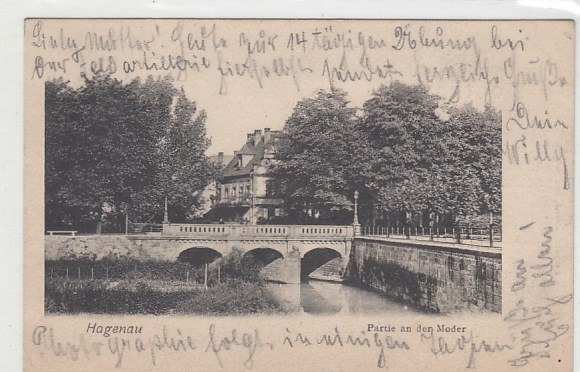 Liebe Mutter! Heute zur 14 tägigen Übung bei
der Feldartillerie hierselbst sendet herzliche Grüße
Dein
Willy
Hagenau
Partie an den Moder
Photographie folgt in einigen Tagen
Gruß an
allen